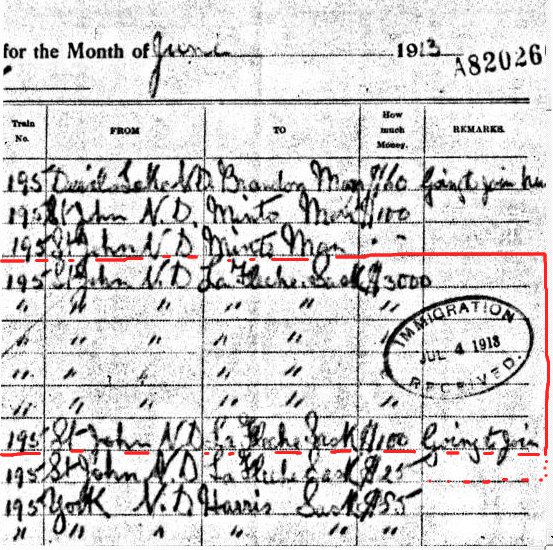 for the Month of June 1913
A82026
Train No. FROM TO How much Money. REMARKS.
195 Devils Lake N.D. Brandon Man $160 Going to join
195 St John N.D. Minto Man $100
195 St John N.D. Minto Man " "
195 St John N.D. La Fleche Sask $3000
" " " " " "
" " " " "
" " " " "
" " " " " "
195 St John N.D. La Fleche Sask $100 Going to join
195 St John N.D. La Fleche Sask $25
195 York N.D. Harris Sask $55
" " " " " "
IMMIGRATION
JUL 4 1913
RECEIVED.